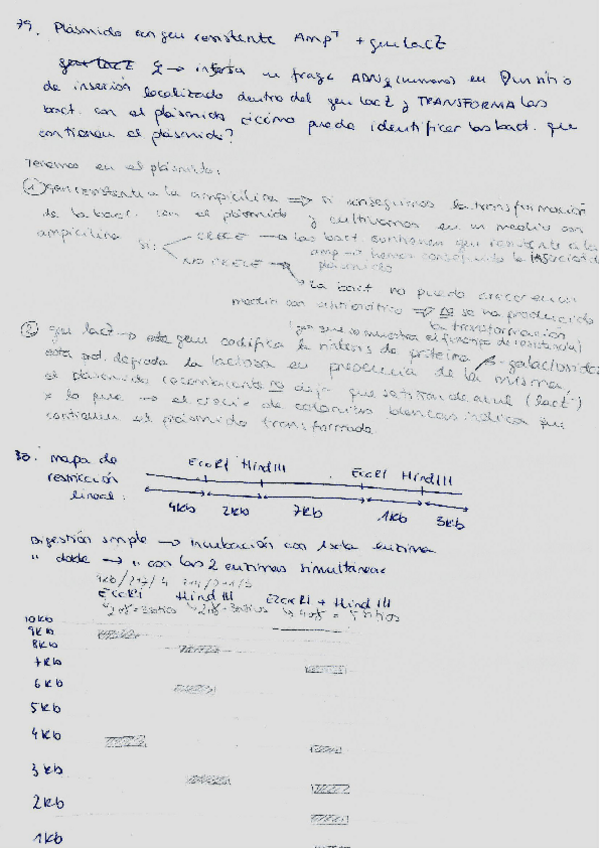 79. Plásmido con gen resistente Amp^r + gen lacZ
→ inserta un frag. ADN (humano) en 1 sitio
de inserción localizado dentro del gen lacZ y TRANSFORMA las
bact. con el plásmido ¿cómo puede identificar las bact. que
contienen el plásmido?
Tenemos en el plásmido:
① gen resistente a la ampicilina ⇒ si conseguimos la transformación
de la bact. con el plásmido y cultivamos en un medio con
ampicilina si:
CRECE → las bact. contienen gen resistente a la
amp → hemos conseguido la inserción del
plásmido
NO CRECE →
la bact no puede crecer en un
medio con antibiótico → no se ha producido
la transformación
② gen lacZ → este gen codifica la síntesis de proteína β-galactosidasa
esta prot. degrada la lactosa en presencia de la misma,
el plásmido recombinante no deja que se tiña de azul (lact⁻)
x lo que → el crecim. de colonias blancas indica que
contienen el plásmido transformado
30. mapa de
restricción
lineal:
EcoRI HindIII EcoRI HindIII
4Kb 2Kb 7Kb 1Kb 3Kb
Digestión simple → incubación con 1 sola enzima
" doble → " con las 2 enzimas simultáneas
EcoRI HindIII EcoRI + HindIII
10Kb
9Kb
8Kb
7Kb
6Kb
5Kb
4Kb
3Kb
2Kb
1Kb